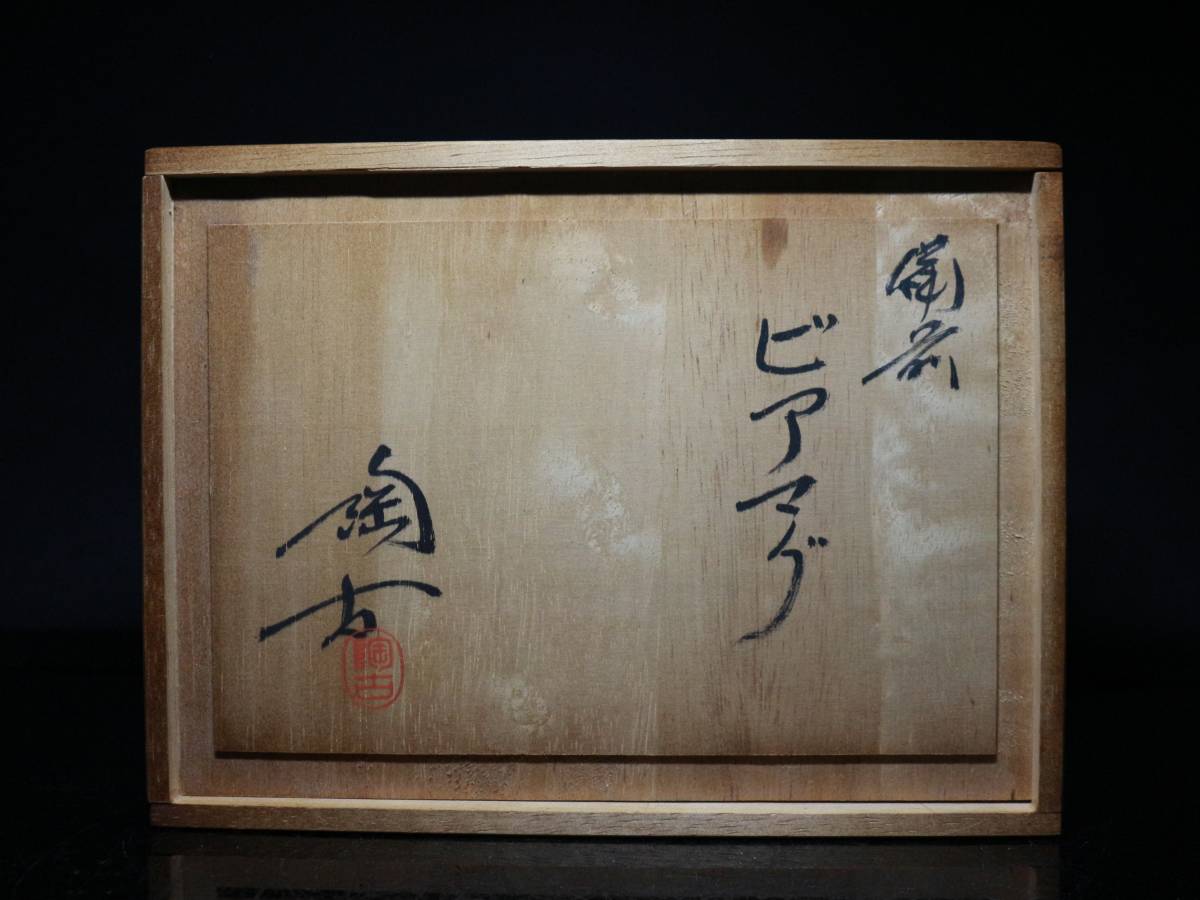 備前
ビアマグ
陶古
陶古